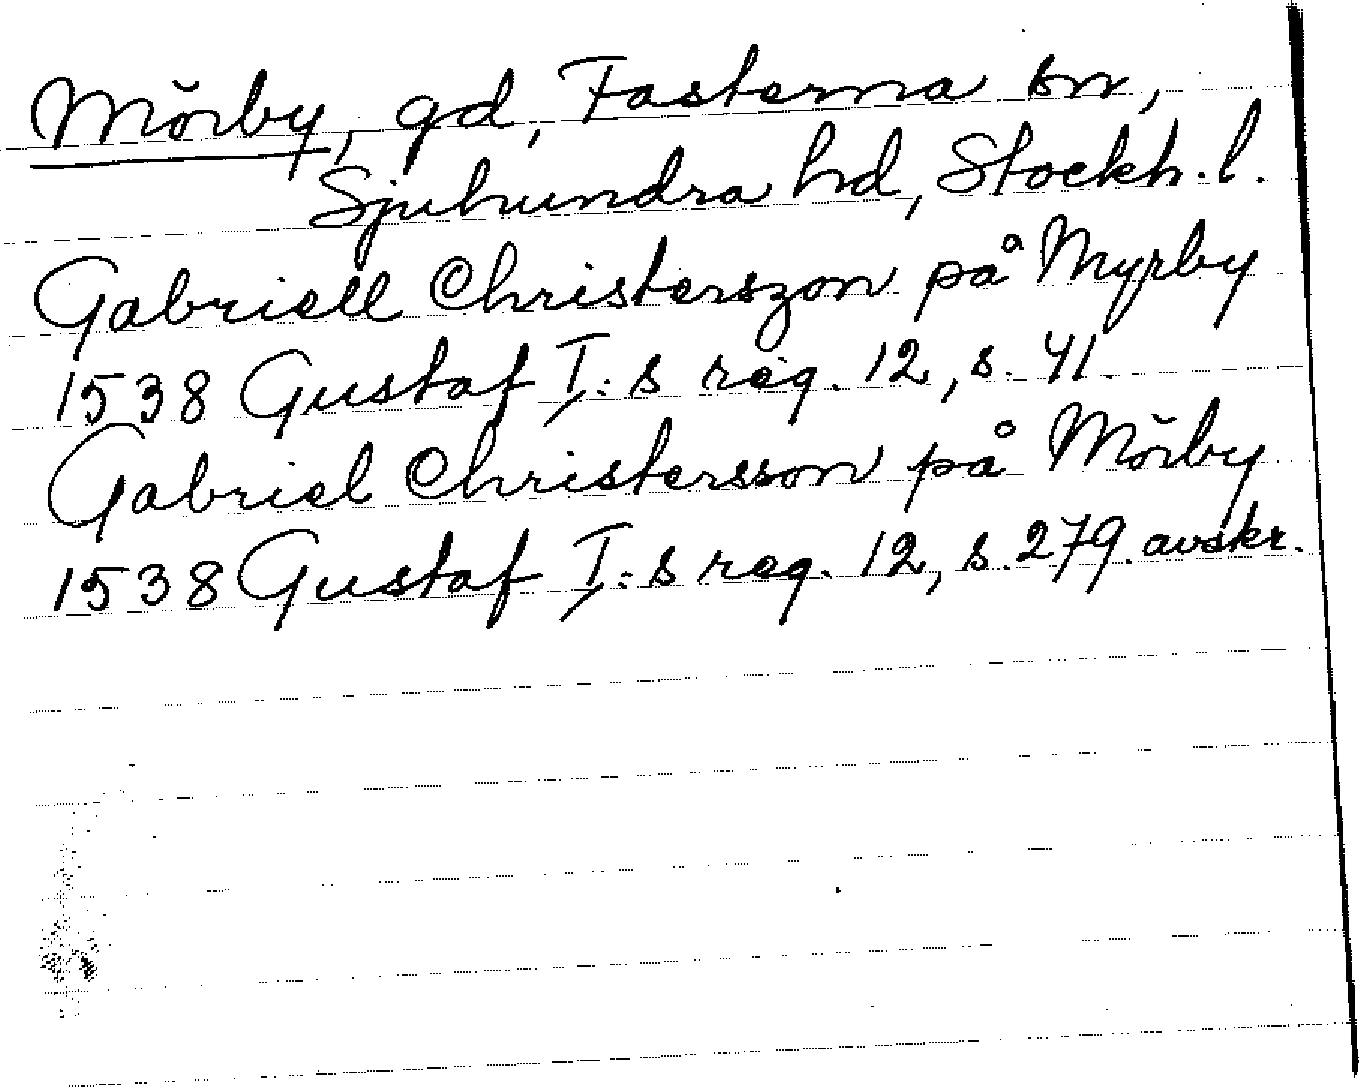 Mörby, gd, Fasterna sn,
Sjuhundra hd, Stockh. l.
Gabriell Christerszon på Myrby
1538 Gustaf I:s reg. 12, s. 41.
Gabriel Christersson på Mörby
1538 Gustaf I:s reg. 12, s. 279. avskr.